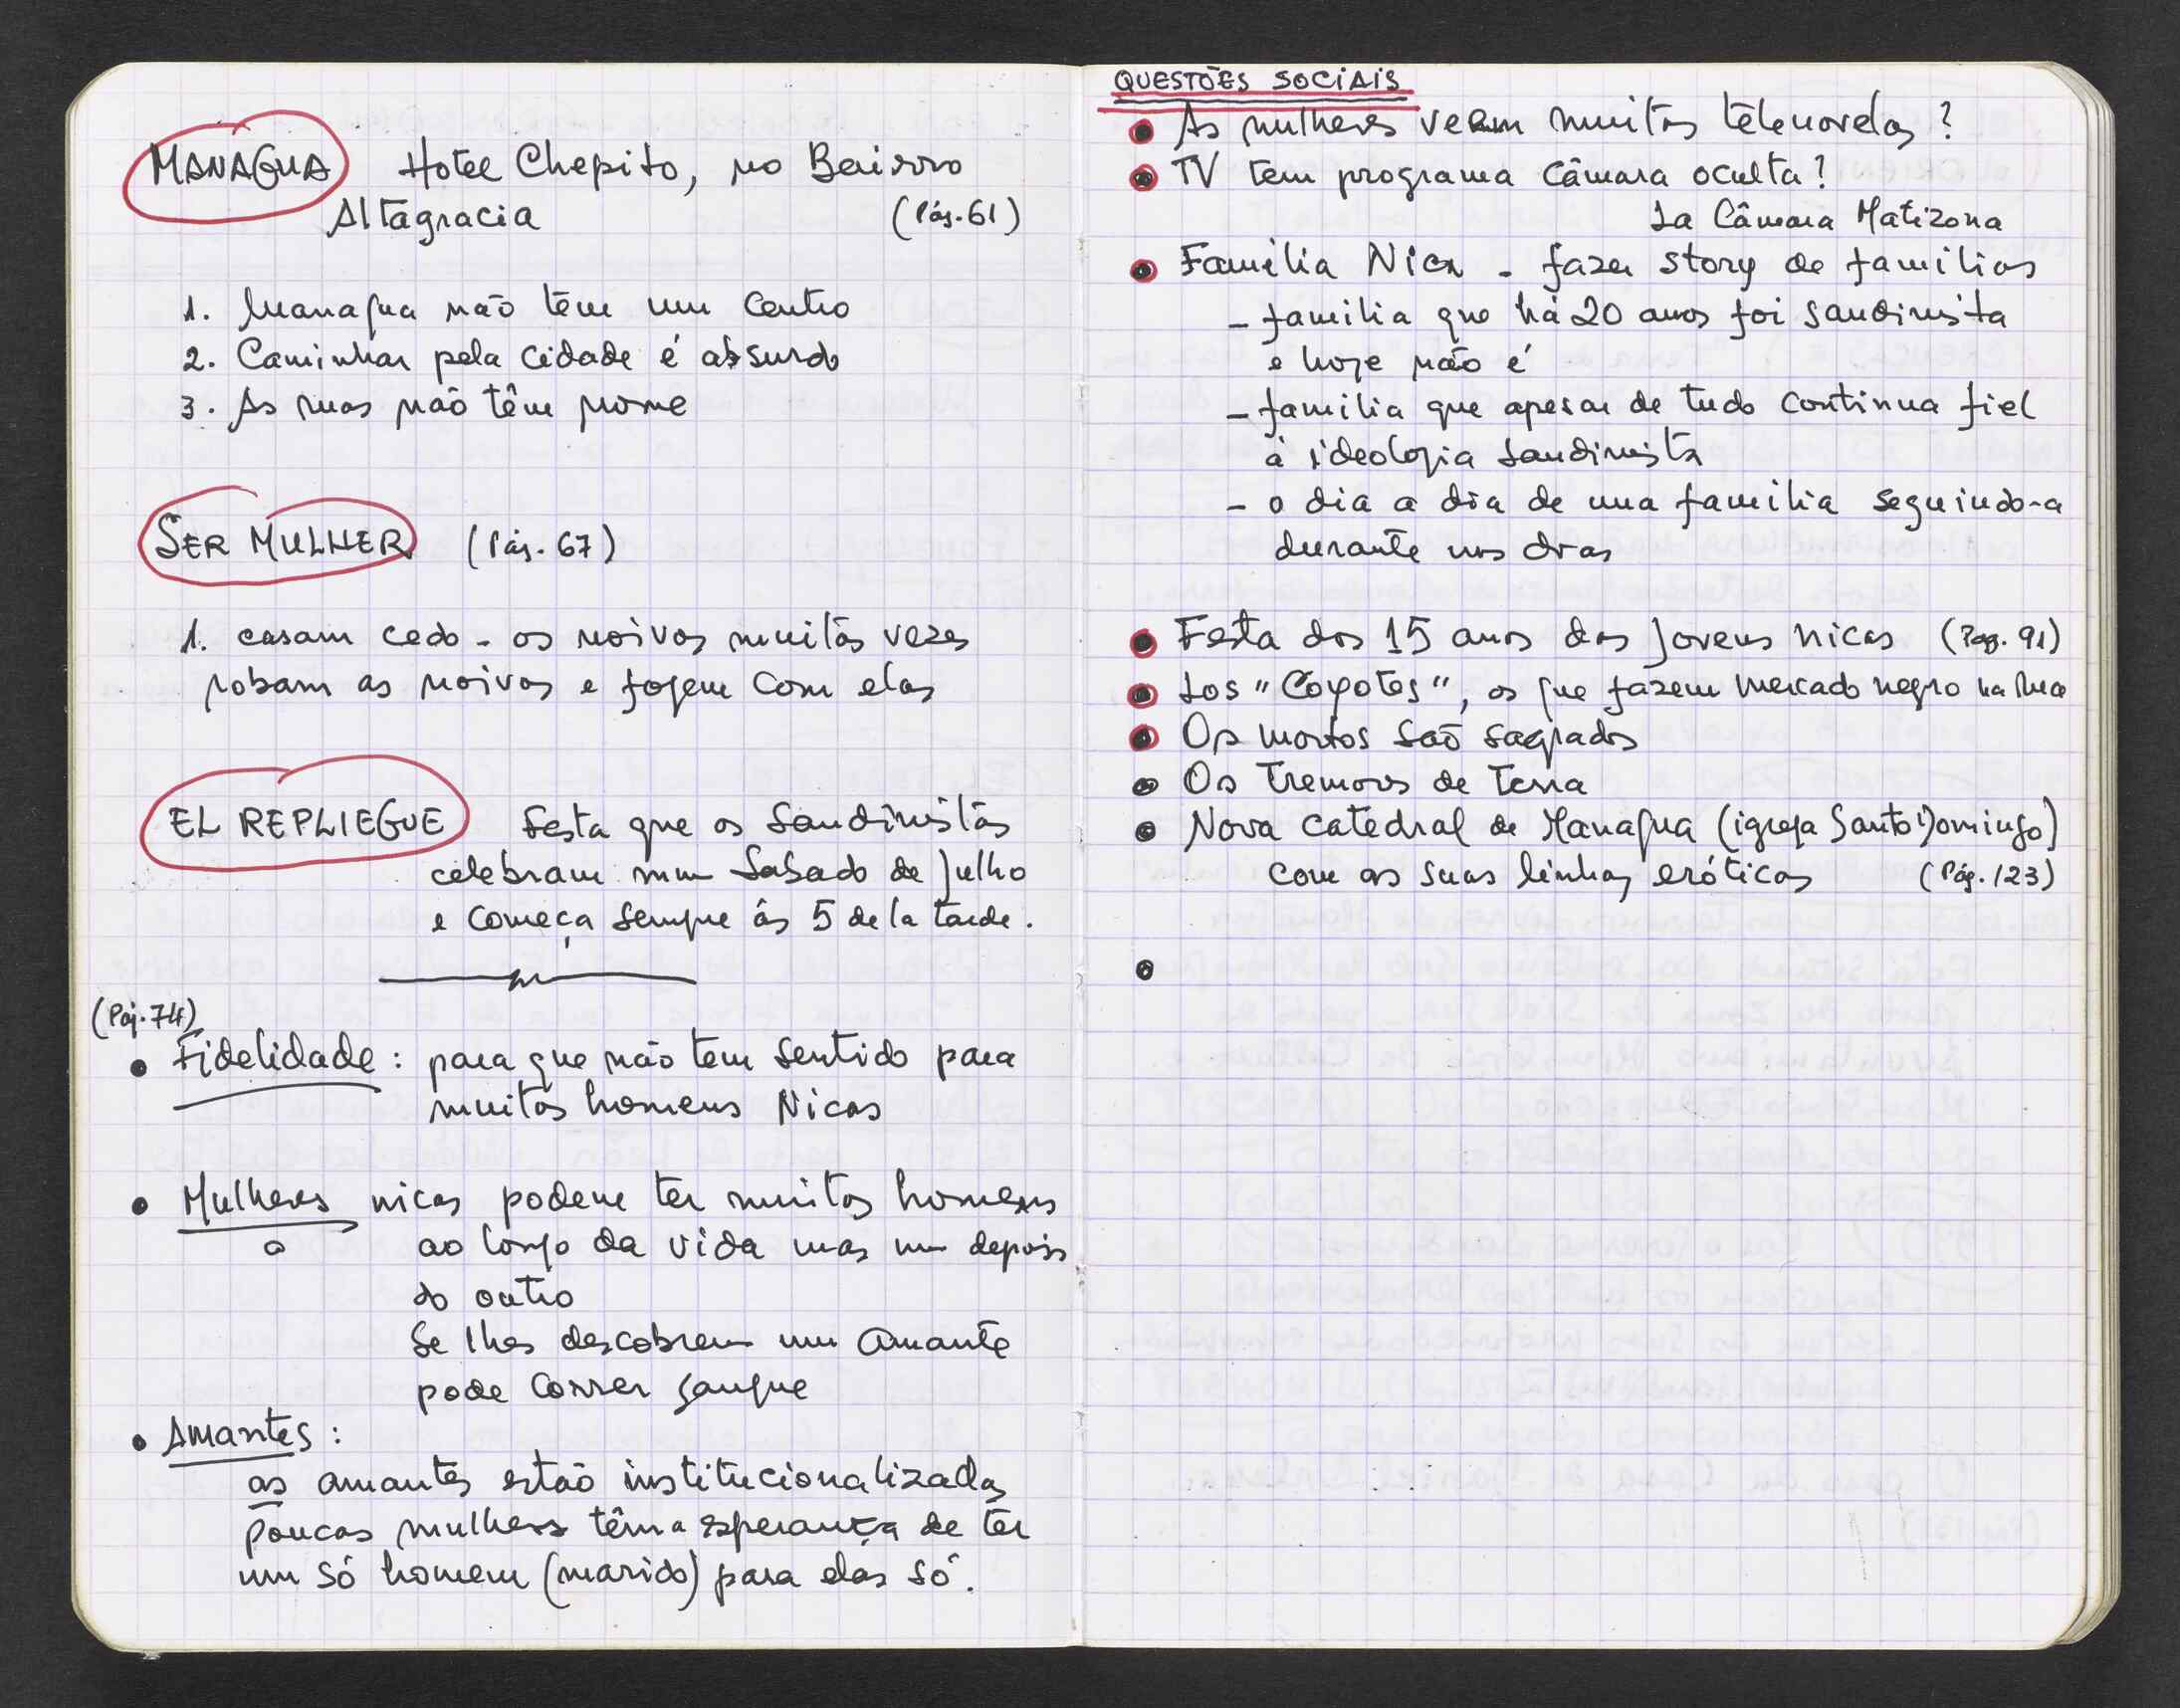 MANAGUA Hotel Chepito, no Bairro
Altagracia (Pág. 61)
1. Managua não têm um centro
2. Caminhar pela cidade é absurdo
3. As ruas não têm nome
SER MULHER (Pág. 67)
1. casam cedo - os noivos muitas vezes
robam as noivas e fogem com elas
EL REPLIEGUE festa que os Sandinistas
celebram num Sabado de Julho
e começa sempre às 5 de la tarde.
(Pág. 74)
• Fidelidade: para que não tem sentido para
muitos homens Nicas
• Mulheres nicas podem ter muitos homens
ao longo da vida mas um depois
do outro
Se lhes descobrem um amante
pode correr sangue
• Amantes:
as amantes estão institucionalizadas
poucas mulheres têm a esperança de ter
um só homem (marido) para elas só.
QUESTÕES SOCIAIS
• As mulheres veem muitas telenovelas?
• TV tem programa câmara oculta?
La Câmara Matizona
• Família Nica - fazer story de famílias
- família que há 20 anos foi sandinista
e hoje não é
- família que apesar de tudo continua fiel
à ideologia sandinista
- o dia a dia de uma família seguindo-a
durante uns dias
• Festa dos 15 anos das jovens nicas (Pag. 91)
• Los "Coyotes", os que fazem mercado negro na rua
• Os mortos são sagrados
• Os tremores de terra
• Nova catedral de Managua (igreja Santo Domingo)
com as suas linhas eróticas (Pág. 123)
•